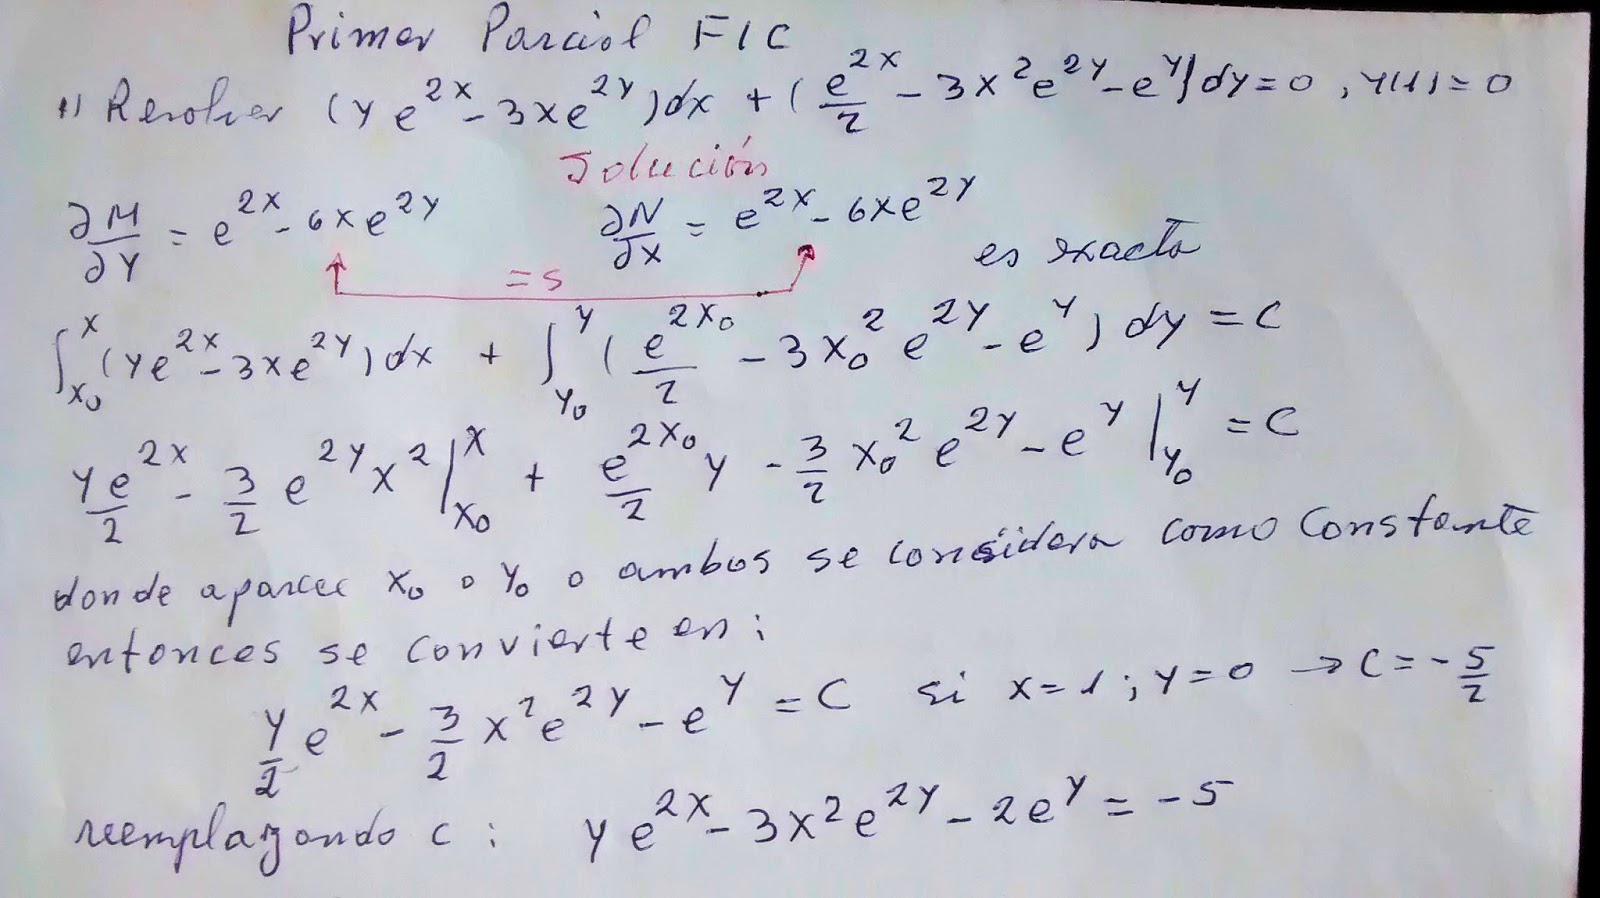 Primer Parcial FIC
1) Resolver (y e^{2x} - 3xe^{2y})dx + (e^{2x}/2 - 3x^2e^{2y} - e^y)dy = 0, y(1) = 0
Solución
∂M/∂y = e^{2x} - 6xe^{2y} ∂N/∂x = e^{2x} - 6xe^{2y}
= s es exacta
∫_{x_0}^{x} (ye^{2x} - 3xe^{2y})dx + ∫_{y_0}^{y} (e^{2x_0}/2 - 3x_0^2 e^{2y} - e^y) dy = C
ye^{2x}/2 - 3/2 e^{2y} x^2 |_{x_0}^{x} + e^{2x_0}/2 y - 3/2 x_0^2 e^{2y} - e^y |_{y_0}^{y} = C
donde aparece x_0 o y_0 o ambos se considera como constante
entonces se convierte en:
y/2 e^{2x} - 3/2 x^2 e^{2y} - e^y = C si x = 1; y = 0 → C = -5/2
reemplazando c: y e^{2x} - 3x^2 e^{2y} - 2e^y = -5